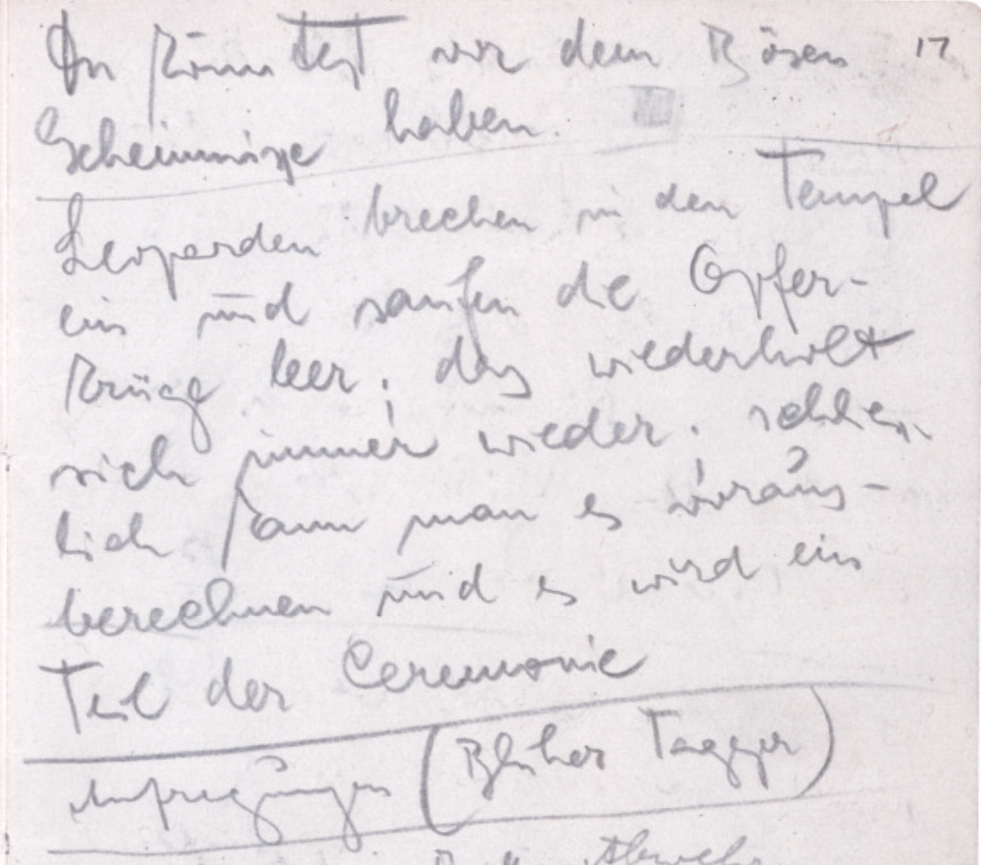 Du könntest vor dem Bösen 17
Geheimnisse haben.
Leoparden brechen in den Tempel
ein und saufen die Opfer-
krüge leer; das wiederholt
sich immer wieder. schließ-
lich kann man es voraus-
berechnen und es wird ein
Teil der Ceremonie
Aufregungen (Blüher Tagger)